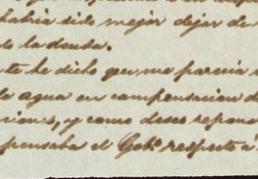 habria sido mejor dejar de
de la deuda.
te he dicho que me parecia
agua en compensacion de
ciones, y como deseo repara
pensaba el Gobº respecto á